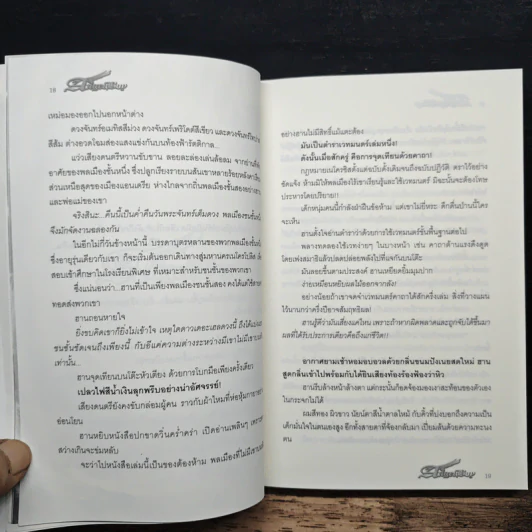 18
เหม่อมองออกไปนอกหน้าต่าง
ดวงจันทร์เมทิสสีม่วง ดวงจันทร์เพริโดต์สีเขียว และดวงจันทร์
สีส้ม ต่างอวดโฉมส่องแสงแข่งกันบนท้องฟ้ารัตติกาล...
แว่วเสียงดนตรีหวานขับขาน ลอยละล่องเล่นล้อลม จากย่าน
อาศัยของพลเมืองชั้นหนึ่ง ซึ่งปลูกเรียงรายบนเส้นเขา
ส่วนเหนือสุดของเมืองแอนเตเรีย ห่างไกลจากถิ่นพลเมืองชั้นสองอย่าง
และพ่อแม่ของเขา
จริงสินะ...คืนนี้เป็นค่ำคืนวันพระจันทร์เต็มดวง พลเมืองชั้น
จึงมักจัดงานฉลองกัน
ในอีกไม่กี่วันข้างหน้านี้ บรรดาบุตรหลานของพวกพลเมืองชั้น
ซึ่งอายุรุ่นเดียวกับเขา ก็จะเริ่มต้นออกเดินทางสู่มหานครเนโครโปลิส
สอบเข้าศึกษาในโรงเรียนพิเศษ ที่เหมาะสำหรับชนชั้นของพวกเขา
ซึ่งแน่นอนว่า...ฮานที่เป็นเพียงพลเมืองชั้นสอง คงได้แต่ใช้
ทอดส่งพวกเขา
ฮานถอนหายใจ
ยิ่งขบคิดเขาก็ยิ่งไม่เข้าใจ เหตุใดดาวเดอะเฮลดวงนี้ ถึงได้
ชนชั้นชัดเจนถึงเพียงนี้ กับอีแค่ความต่างระหว่างมีเขาไม่มีเขา
เท่านั้น...
ฮานจุดเทียนบนโต๊ะหัวเตียง ด้วยการโบกมือเพียงครั้งเดียว
เปลวไฟสีน้ำเงินลุกพรึบอย่างน่าอัศจรรย์!
เสียงดนตรียังคงขับกล่อมผู้คน ราวกับผ้าไหมที่ห่อหุ้มกายา
อ่อนโยน
ฮานหยิบหนังสือปกขาดวิ่นคร่ำคร่า เปิดอ่านเพลินๆ
สว่างเกินจะข่มหลับ
จะว่าไปหนังสือเล่มนี้เป็นของต้องห้าม พลเมืองที่ไม่มี
อย่างฮานไม่มีสิทธิ์แม้แตะต้อง
มันเป็นตำราเวทมนตร์เล่มหนึ่ง!
ดังนั้นเมื่อสักครู่ คือการจุดเทียนด้วยคาถา!
กฎหมายเนโครซิสตั้งแต่ฉบับดั้งเดิมจนถึงฉบับปฏิวัติ ตราไว้อย่าง
ชัดแจ้ง ห้ามมิให้พลเมืองไร้เขาเรียนรู้และใช้เวทมนตร์ มิฉะนั้นจะต้องโทษ
ประหารโดยปริยาย!!
เด็กหนุ่มคนนี้กำลังฝ่าฝืนข้อห้าม แต่เขาไม่ยี่หระ ดึกดื่นป่านนี้ใคร
จะเห็น
ฮานตั้งใจอ่านตำราว่าด้วยการใช้เวทมนตร์ขั้นพื้นฐานต่อไป
พลางทดลองใช้เวทง่ายๆ ในบางหน้า เช่น คาถาต้านแรงดึงดูด
โดยเพ่งสมาธิแล้วปลดปล่อยพลังไปที่แจกันบนโต๊ะ
มันลอยขึ้นตามประสงค์ ฮานเหยียดยิ้มมุมปาก
ง่ายเหมือนหยิบผลไม้ออกจากลัง!
อย่างน้อยถ้าเขาจดจำเวทมนตร์คาถาได้สักครึ่งเล่ม สิ่งที่วาดแผน
ไว้นานกว่าครึ่งปีอาจสัมฤทธิผล!
ฮานรู้ดีว่ามันเสี่ยงแค่ไหน เพราะถ้าหากผิดพลาดและถูกจับได้ขึ้นมา
ผลที่ได้รับประการเดียวคือถึงแก่ชีวิต!!
อากาศยามเช้าหอมอบอวลด้วยกลิ่นขนมปังเนยสดใหม่ ฮาน
สูดกลิ่นเข้าไปพร้อมกับได้ยินเสียงท้องร้องฟ้องว่าหิว
ฮานรีบล้างหน้าล้างตา แต่กระนั้นก็อดจ้องมองเงาสะท้อนของตัวเอง
ในกระจกไม่ได้
ผมสีทอง ผิวขาว นัยน์ตาสีน้ำตาลไหม้ กับคิ้วที่บ่งบอกถึงความเป็น
เด็กมั่นใจในตนเองสูง อีกทั้งสายตาที่จ้องกลับมา เปี่ยมล้นด้วยความทะนง
ตน
19